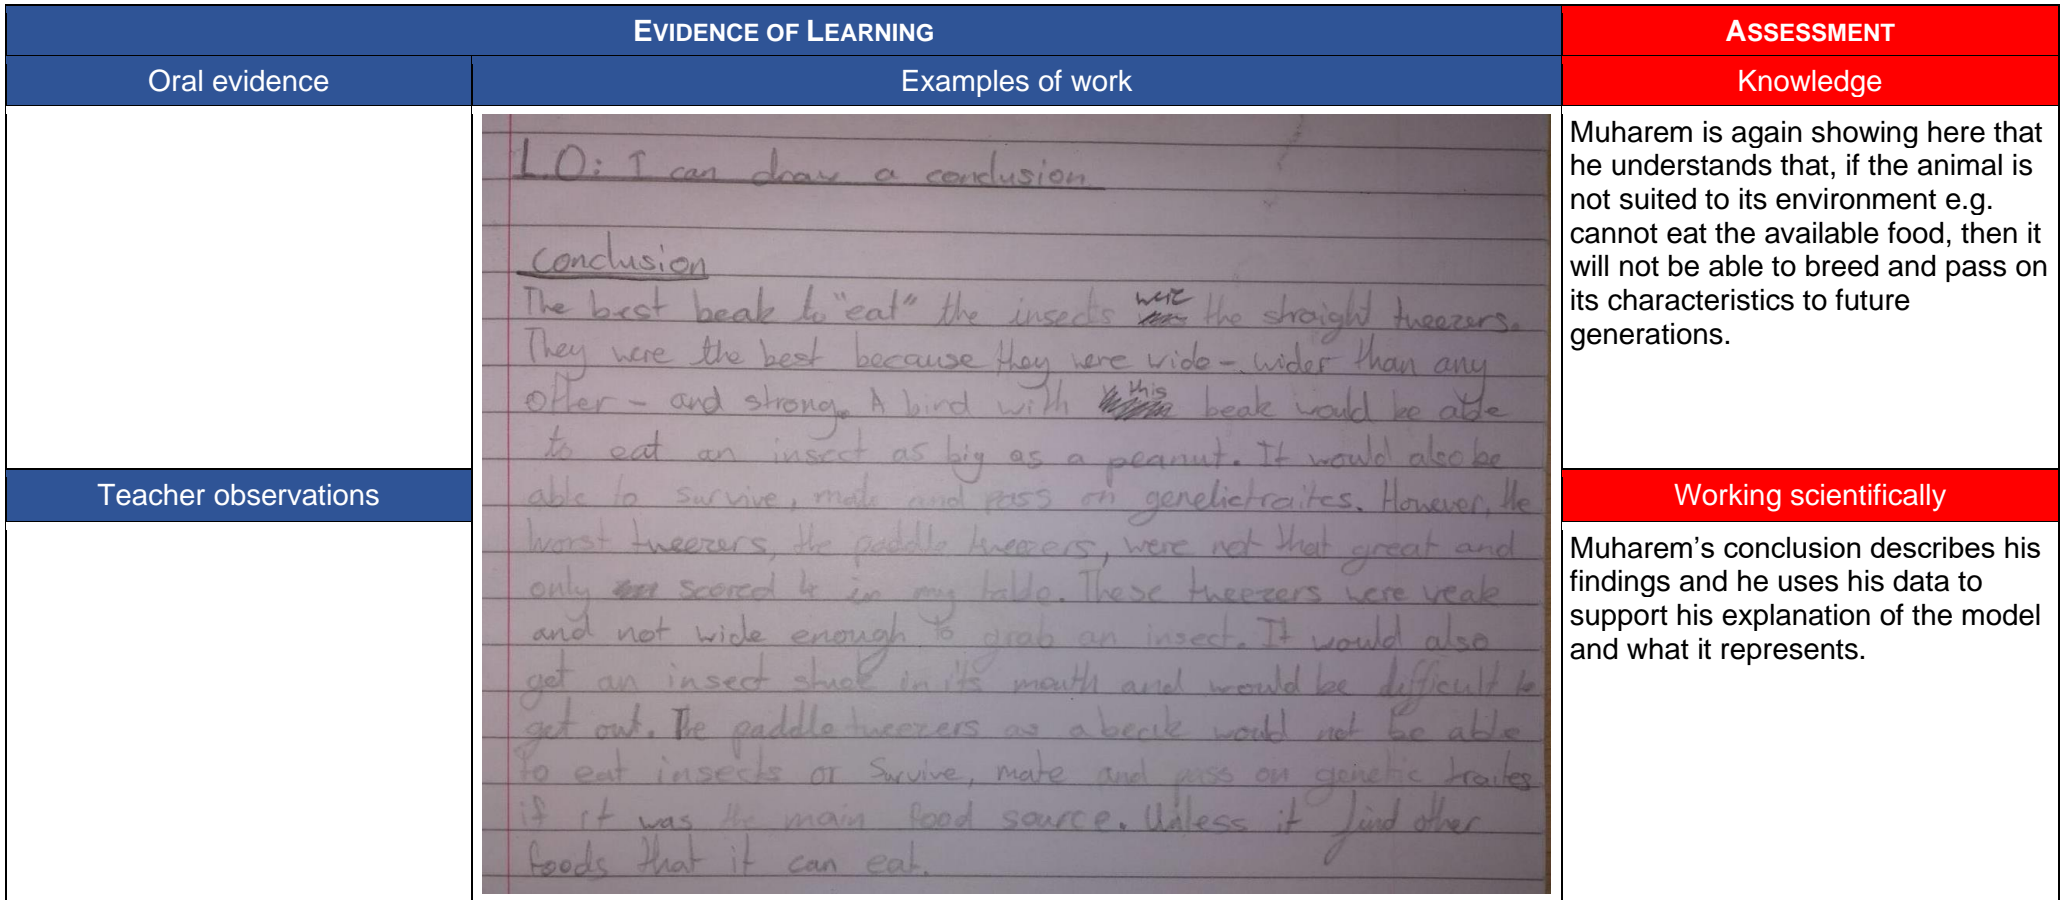 EVIDENCE OF LEARNING
ASSESSMENT
Oral evidence
Examples of work
Knowledge
L.O: I can draw a conclusion
Conclusion
The best beak to "eat" the insects were the straight tweezers.
They were the best because they were wide - wider than any
other - and strong. A bird with this beak would be able
to eat an insect as big as a peanut. It would also be
able to survive, mate and pass on genetic traites. However, the
worst tweezers, the paddle tweezers, were not that great and
only scored 4 in my table. These tweezers were weak
and not wide enough to grab an insect. It would also
get an insect stuck in its mouth and would be difficult to
get out. The paddle tweezers as a beak would not be able
to eat insects or Survive, mate and pass on genetic traites
if it was the main food source. Unless it find other
foods that it can eat.
Muharem is again showing here that
he understands that, if the animal is
not suited to its environment e.g.
cannot eat the available food, then it
will not be able to breed and pass on
its characteristics to future
generations.
Teacher observations
Working scientifically
Muharem's conclusion describes his
findings and he uses his data to
support his explanation of the model
and what it represents.